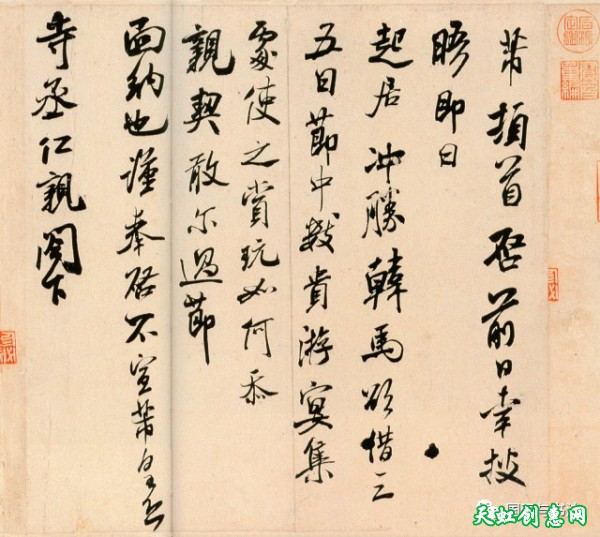 芾頓首啓前日幸披
晤即日
起居冲勝韓馬欲借三
五日節中數貴游宴集
處使之賞玩如何忝
親契敢尔過節
面納也謹奉啓不宣芾皇恐
寺丞仁親閤下
天虹创惠网